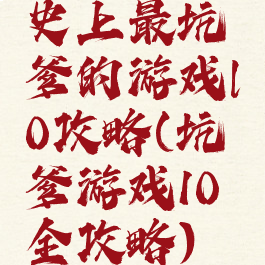 史上最坑
爹的游戏1
0攻略(坑
爹游戏10
全攻略)